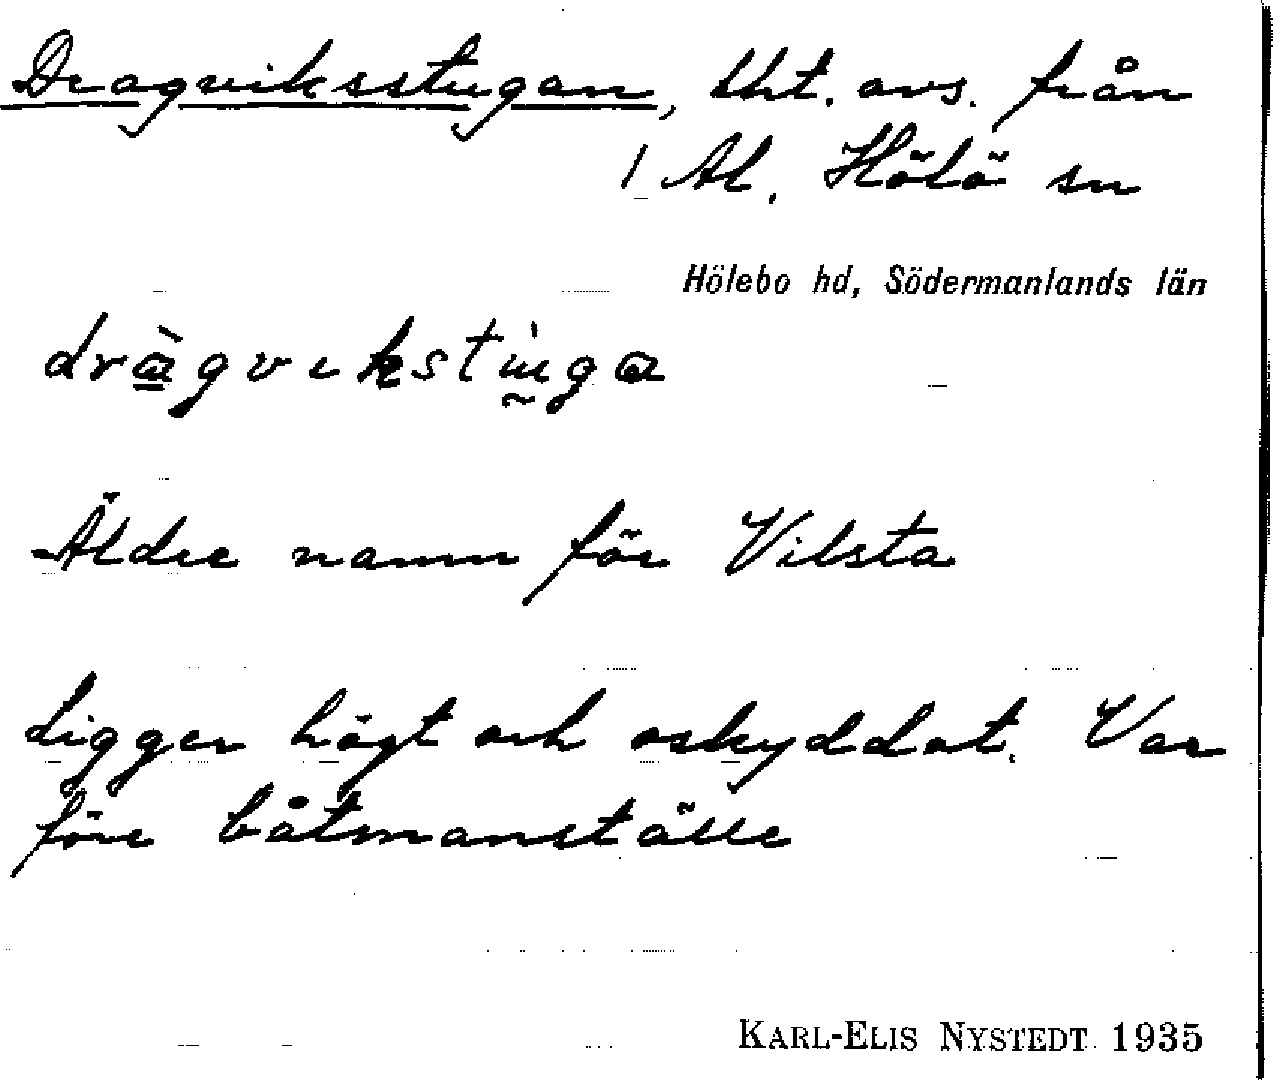 Dragviksstugan, lht. avs. från
1 Al. Hölö sn
Hölebo hd, Södermanlands län
dràgvikstùga
Äldre namn för Vilsta
Ligger högt och oskyddat. Var
före båtmanställe
KARL-ELIS NYSTEDT 1935